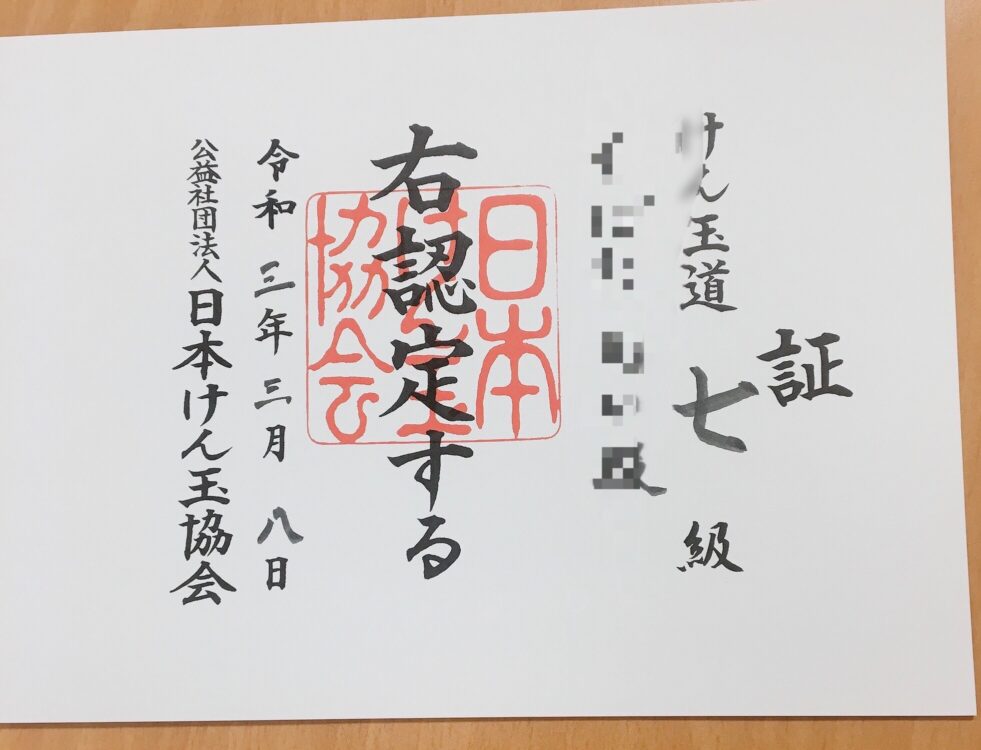 証
けん玉道 七 級
右認定する
令和 三年 三月 八日
公益社団法人日本けん玉協会
日本
けん玉
協会